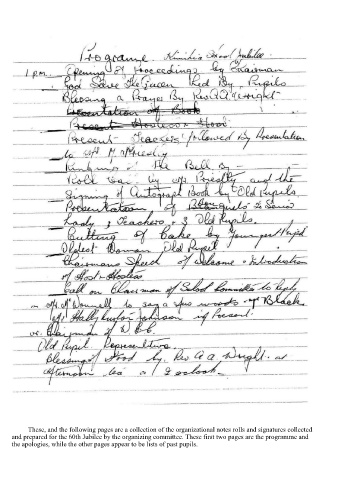 Programme School Jubilee
1 p.m. Opening of Proceedings by Chairman
God Save The Queen Led By Pupils
Blessing & Prayer By Rev A.A. Wright
Presentation of Book
Present
Present Teachers followed by Presentation
to
Ringing of The Bell By
Roll Call by Mrs Priestly and the
Signing of Autograph Book by Old Pupils
Presentation of Bouquets to Senior
Lady, 3 Teachers & 3 Old Pupils.
Cutting of Cake by Youngest Pupil
Oldest Woman Old Pupil
Chairmans Speech of Welcome & Introduction
of Host & Hostess
Call on Chairman of School Committee to Reply
or to say a few words
if Present.
or Chairman of
Old Pupil Representative.
Blessing of Food by Rev A A Wright. at
afternoon tea at o'clock.
These, and the following pages are a collection of the organizational notes rolls and signatures collected
and prepared for the 60th Jubilee by the organizing committee. These first two pages are the programme and
the apologies, while the other pages appear to be lists of past pupils.